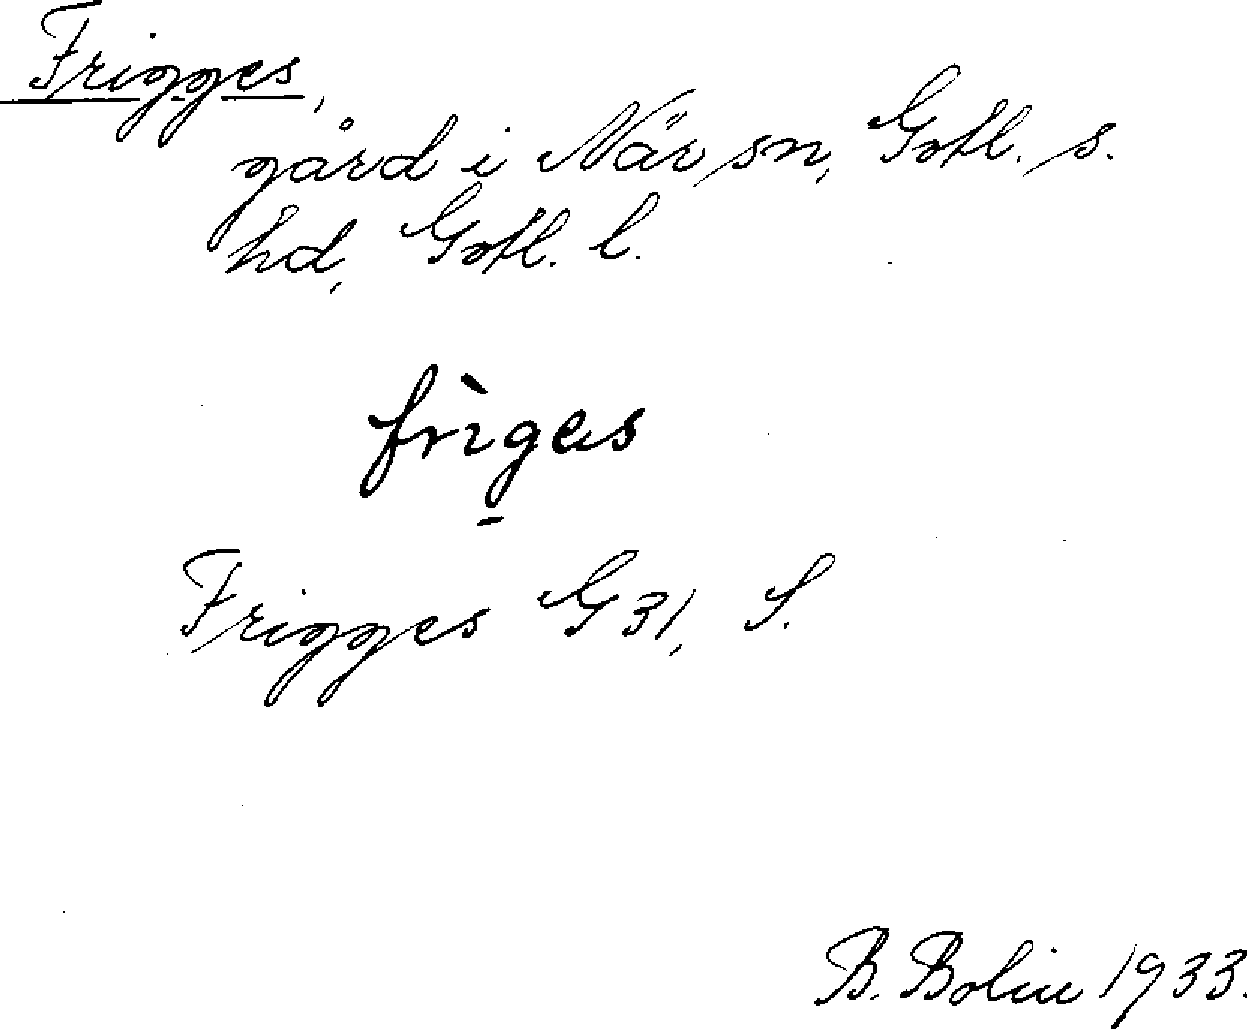 Frigges,
gård i När sn, Gotl. s.
hd, Gotl. l.
frìges
Frigges G31, S.
B. Bolin 1933.